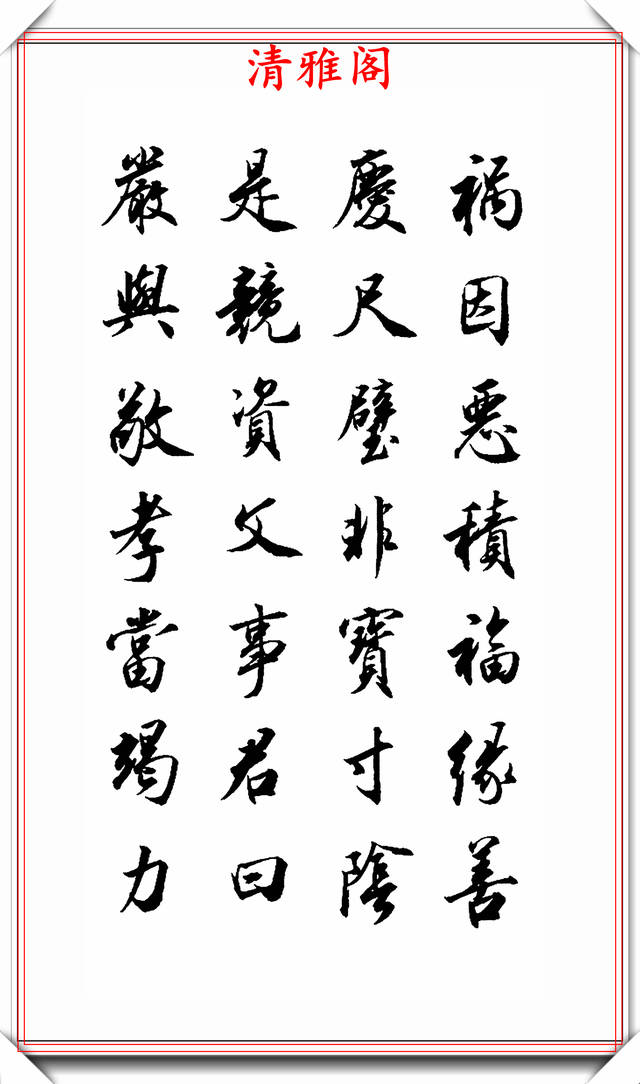 清雅阁
禍因惡積福緣善
慶尺璧非寶寸陰
是競資父事君曰
嚴與敬孝當竭力